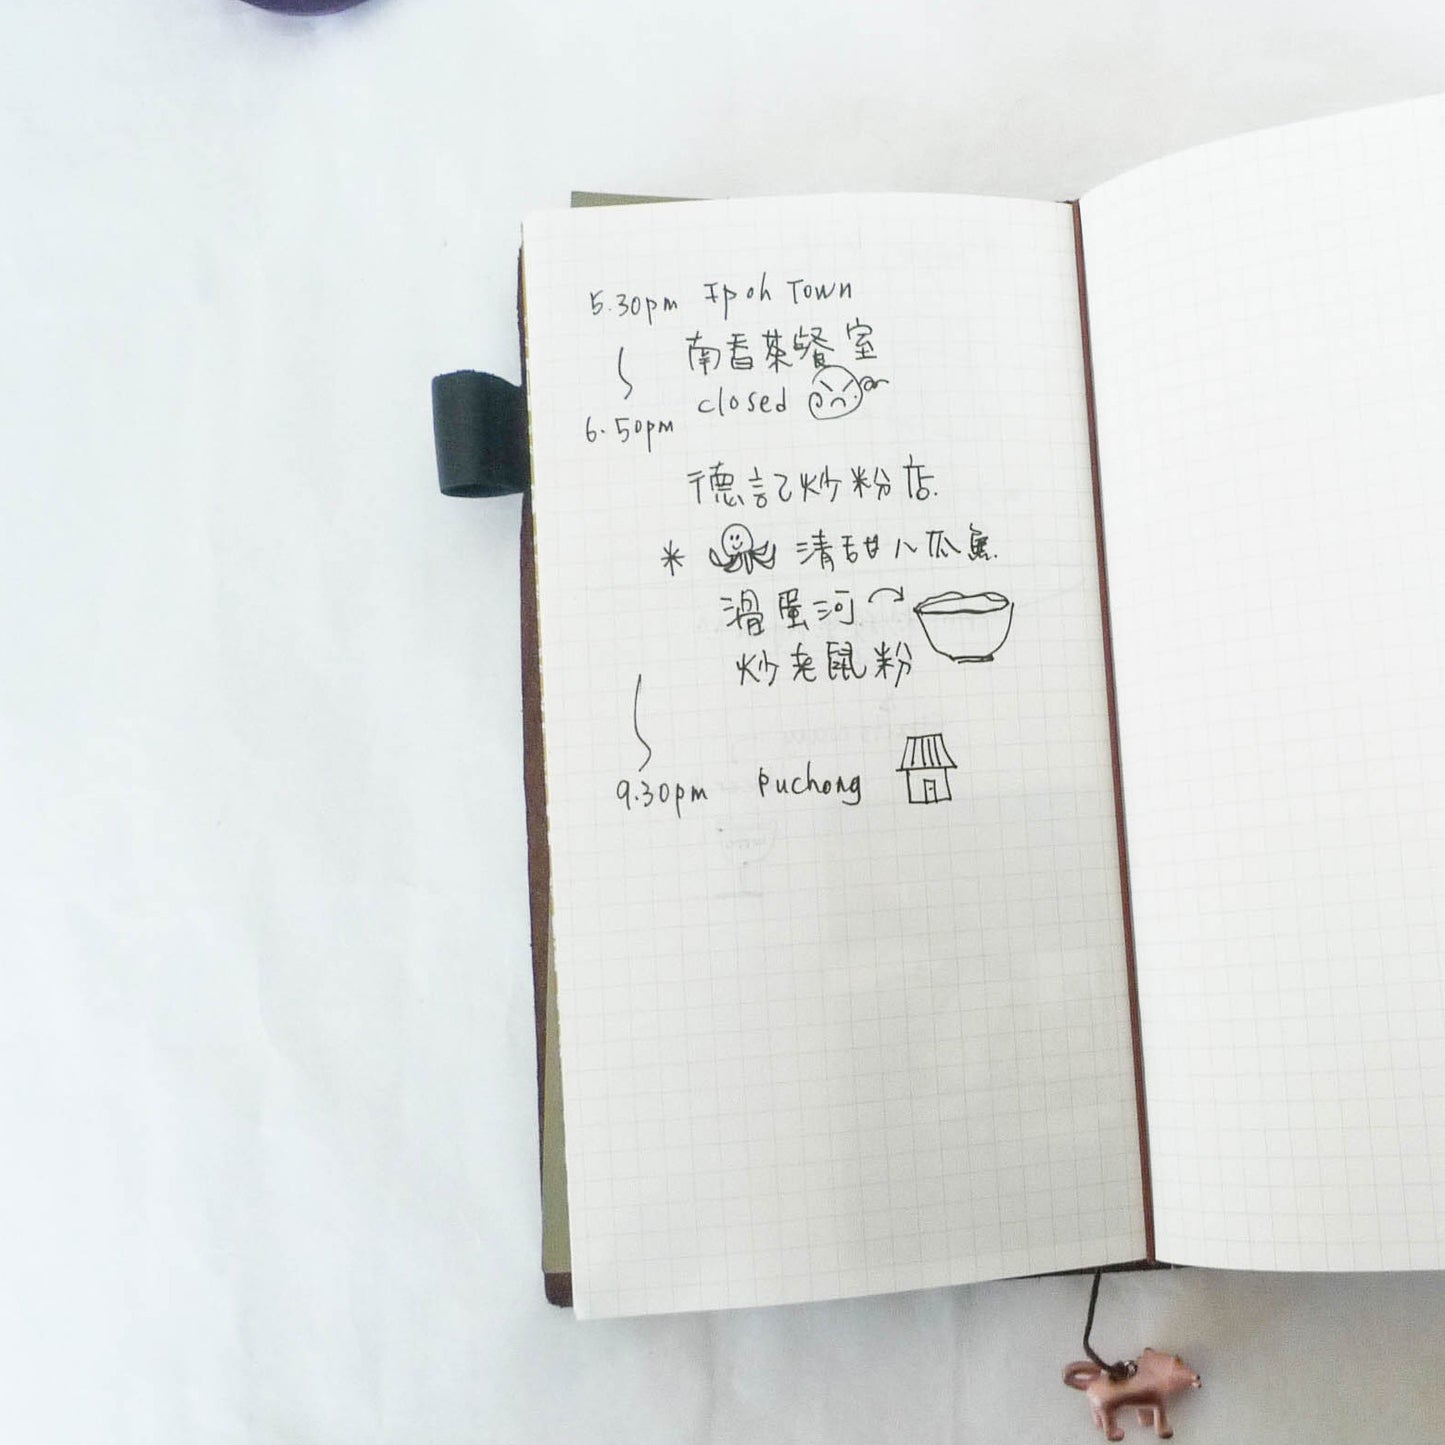 5.30pm Ipoh Town
南香茶餐室
closed
6.50pm
德記炒粉店.
* 清甜八爪魚.
滑蛋河
炒老鼠粉
9.30pm Puchong